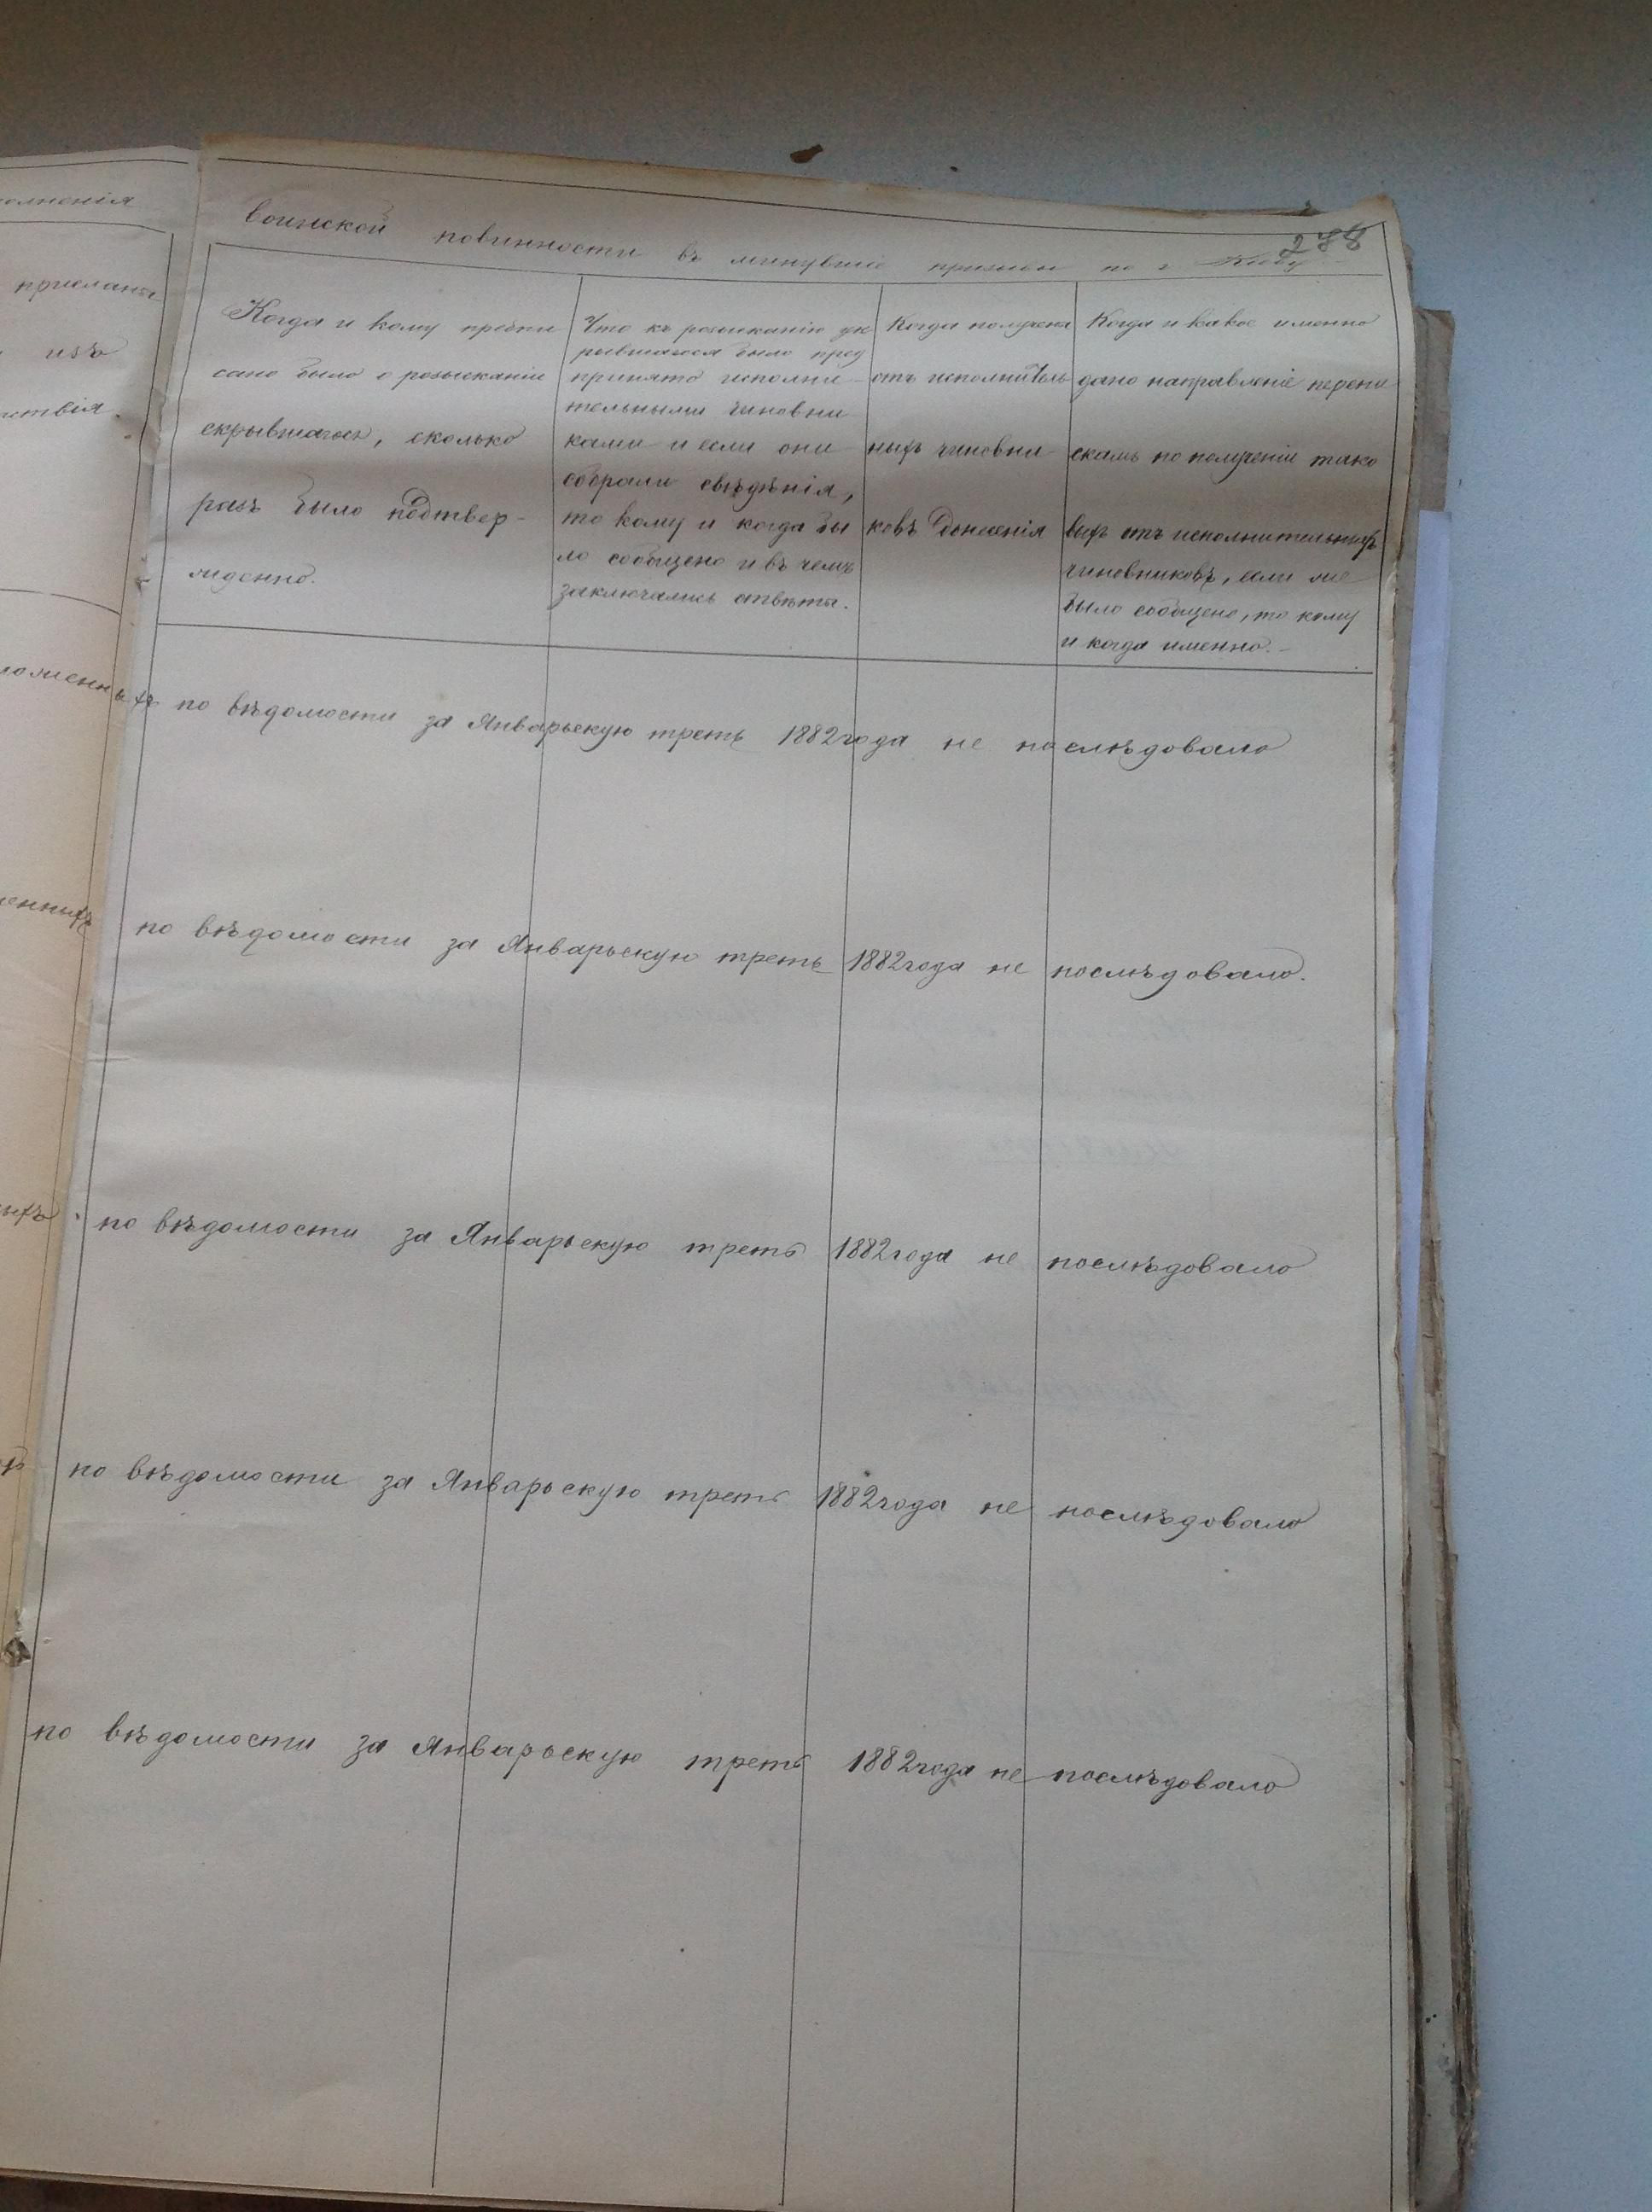 олненія
прислана
изъ
ствія.
ложенныхъ
енныхъ
ыхъ
288
воинской повинности въ минувшіе призывы по г. Кіеву
Когда и кому предпи
сано было о розысканіи
скрывшагося, сколько
разъ было подтвер-
ждено.
Что къ розысканію ук
рывшагося было пред
принято исполни-
тельными чиновни
ками и если они
собрали свѣдѣнія,
то кому и когда бы
ло сообщено и въ чемъ
заключались отвѣты.
Когда получена
отъ исполнитель
ныхъ чиновни
ковъ Донесенія
Когда и какое именно
дано направленіе перепи
скамъ по полученіи тако
выхъ отъ исполнительныхъ
чиновниковъ, если же
было сообщено, то кому
и когда именно.-
по вѣдомости за Январьскую треть 1882 года не послѣдовало
по вѣдомости за Январьскую треть 1882 года не послѣдовало.
по вѣдомости за Январьскую треть 1882 года не послѣдовало
по вѣдомости за Январьскую треть 1882 года не послѣдовало
по вѣдомости за Январьскую треть 1882 года не послѣдовало